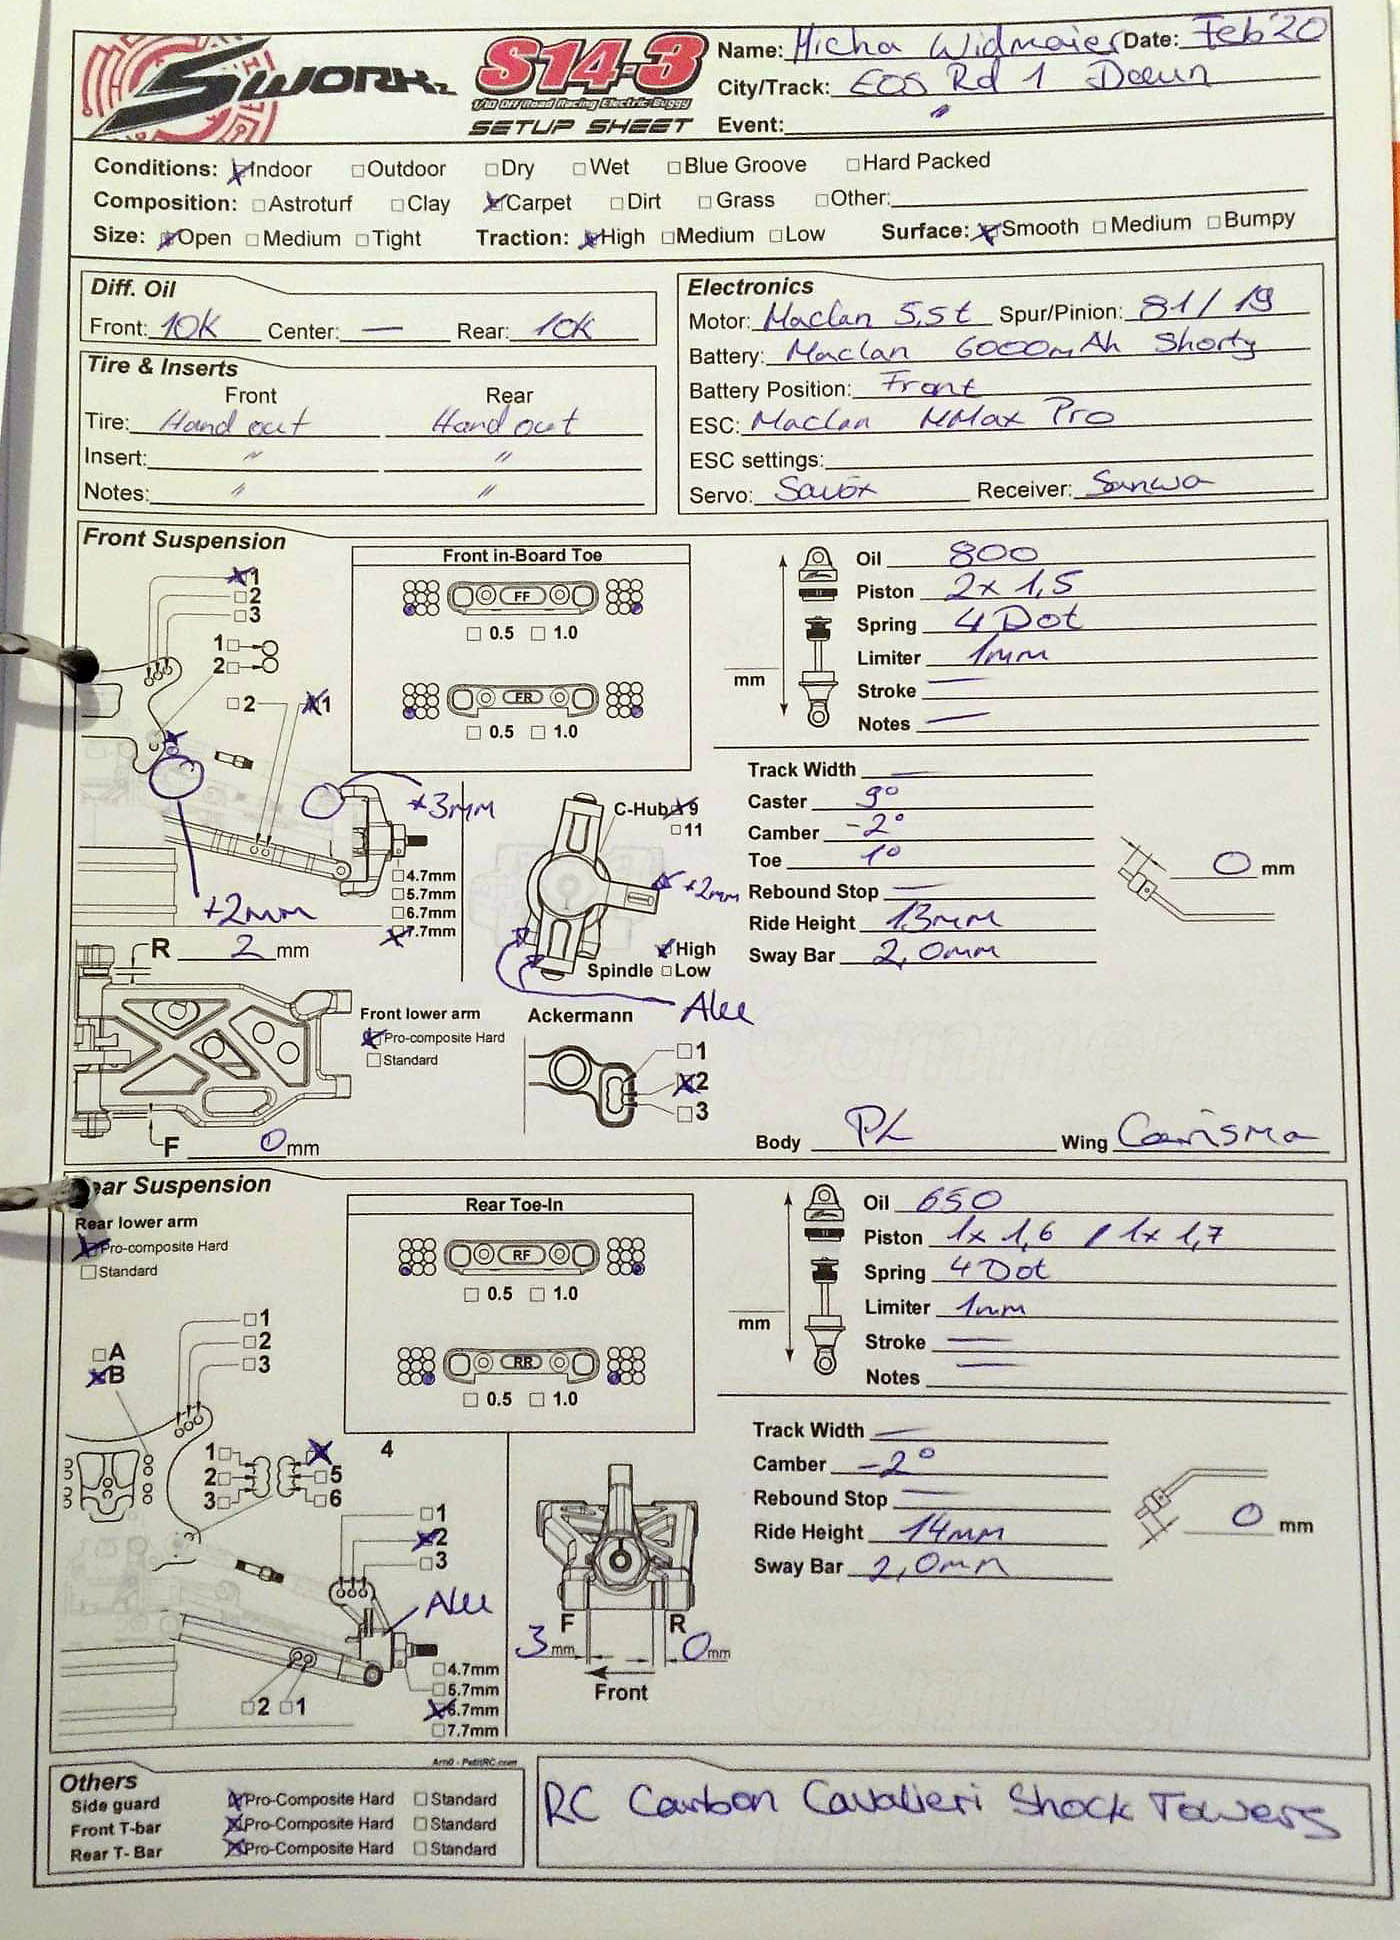 SWORKz S14-3 Name: Micha Widmaier Date: Feb'20
1/10 Off Road Racing Electric Buggy
SETUP SHEET
City/Track: EOS Rd 1 Daun
Event: "
Conditions: Indoor Outdoor Dry Wet Blue Groove Hard Packed
Composition: Astroturf Clay Carpet Dirt Grass Other:
Size: Open Medium Tight Traction: High Medium Low Surface: Smooth Medium Bumpy
Diff. Oil
Front: 10K Center: — Rear: 10K
Tire & Inserts
Front Rear
Tire: Hand out Hand out
Insert: " "
Notes: " "
Electronics
Motor: Maclan 5,5t Spur/Pinion: 81/19
Battery: Maclan 6000mAh Shorty
Battery Position: Front
ESC: Maclan MMax Pro
ESC settings:
Servo: Savöx Receiver: Sanwa
Front Suspension
1
2
3
1
2
2 1
+3mm
+2mm
4.7mm
5.7mm
6.7mm
7.7mm
R 2 mm
F 0 mm
Front in-Board Toe
FF
0.5 1.0
FR
0.5 1.0
C-Hub 9
11
+2mm
High
Spindle Low
Alu
Front lower arm
Pro-composite Hard
Standard
Ackermann
1
2
3
mm
Oil 800
Piston 2x 1,5
Spring 4 Dot
Limiter 1mm
Stroke —
Notes —
Track Width —
Caster 9°
Camber -2°
Toe 1°
Rebound Stop —
Ride Height 13mm
Sway Bar 2,0mm
0 mm
Body PL Wing Carisma
Rear Suspension
Rear lower arm
Pro-composite Hard
Standard
A
B
1
2
3
1 4
2 5
3 6
1
2
3
Alu
2 1
4.7mm
5.7mm
6.7mm
7.7mm
Rear Toe-In
RF
0.5 1.0
RR
0.5 1.0
F R
3 mm 0 mm
Front
mm
Oil 650
Piston 1x 1,6 / 1x 1,7
Spring 4 Dot
Limiter 1mm
Stroke —
Notes —
Track Width —
Camber -2°
Rebound Stop —
Ride Height 14mm
Sway Bar 2,0mm
0 mm
Arn0 - PetitRC.com
Others
Side guard Pro-Composite Hard Standard
Front T-bar Pro-Composite Hard Standard
Rear T- Bar Pro-Composite Hard Standard
RC Carbon Cavalieri Shock Towers